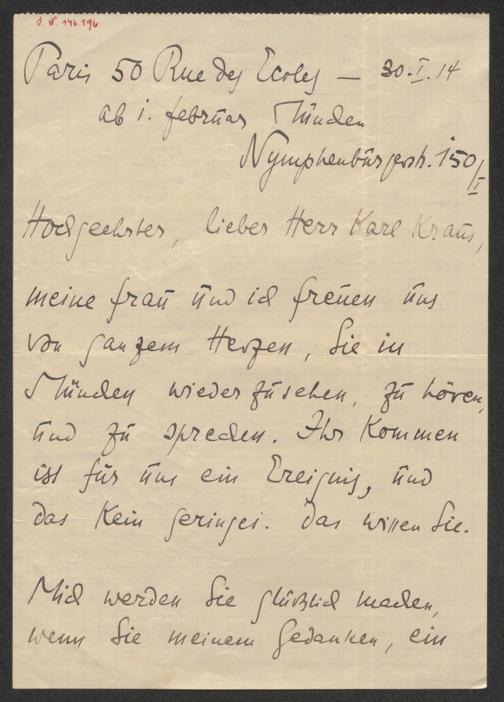 J. N. 146.196
Paris 50 Rue des Ecoles — 30.I.14
ab 1. februar München
Nymphenburgerstr. 150/I
Hochgeehrter, lieber Herr Karl Kraus,
meine frau und ich freuen uns
von ganzem Herzen, Sie in
München wiederzusehen, zu hören,
und zu sprechen. Ihr Kommen
ist für uns ein Ereignis, und
das kein geringes. Das wissen Sie.
Mich werden Sie glücklich machen,
wenn Sie meinem Gedanken, ein